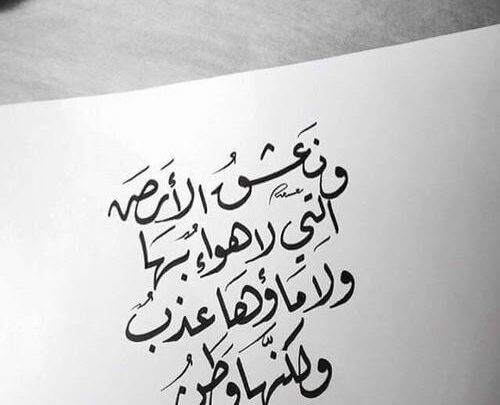 ونَعشقُ الأرضَ
التي لا هواءُ بهَا
ولا مَاؤها عذبٌ
ولكنّها وَطنُ